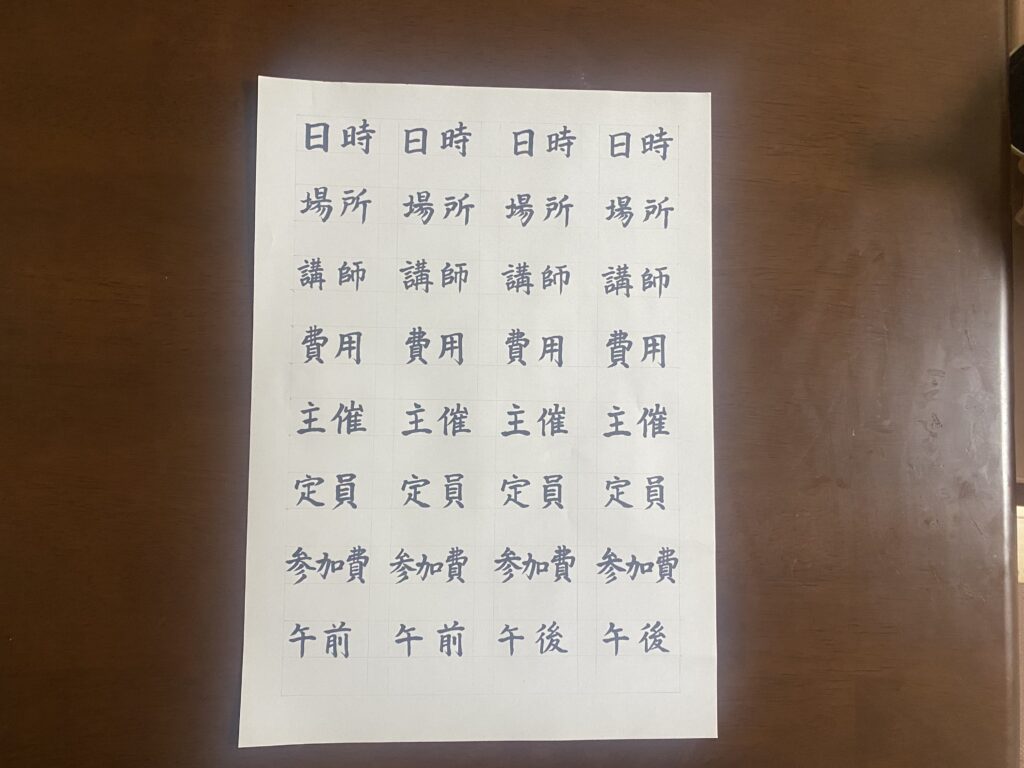 日時 日時 日時 日時
場所 場所 場所 場所
講師 講師 講師 講師
費用 費用 費用 費用
主催 主催 主催 主催
定員 定員 定員 定員
参加費 参加費 参加費 参加費
午前 午前 午後 午後